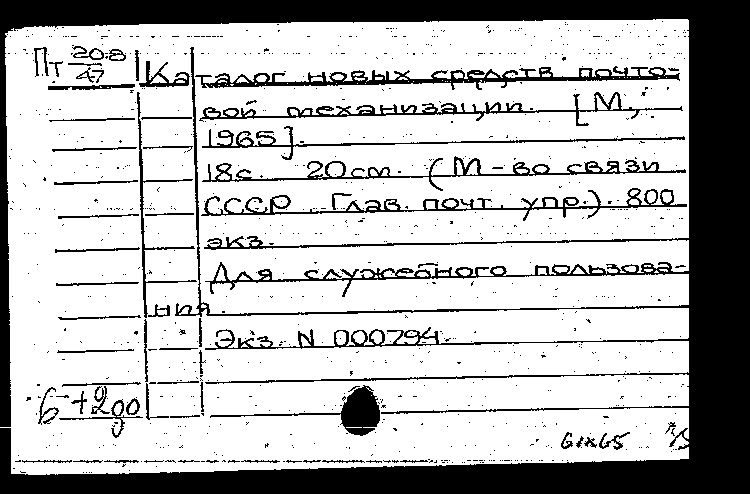 Пт 20-8/47 Каталог новых средств почто-
вой механизации. [М.,
1965].
18с. 20см. (М-во связи
СССР. Глав. почт. упр.). 800
экз.
Для служебного пользова-
ния.
Экз. N 000794.
6 + 2до